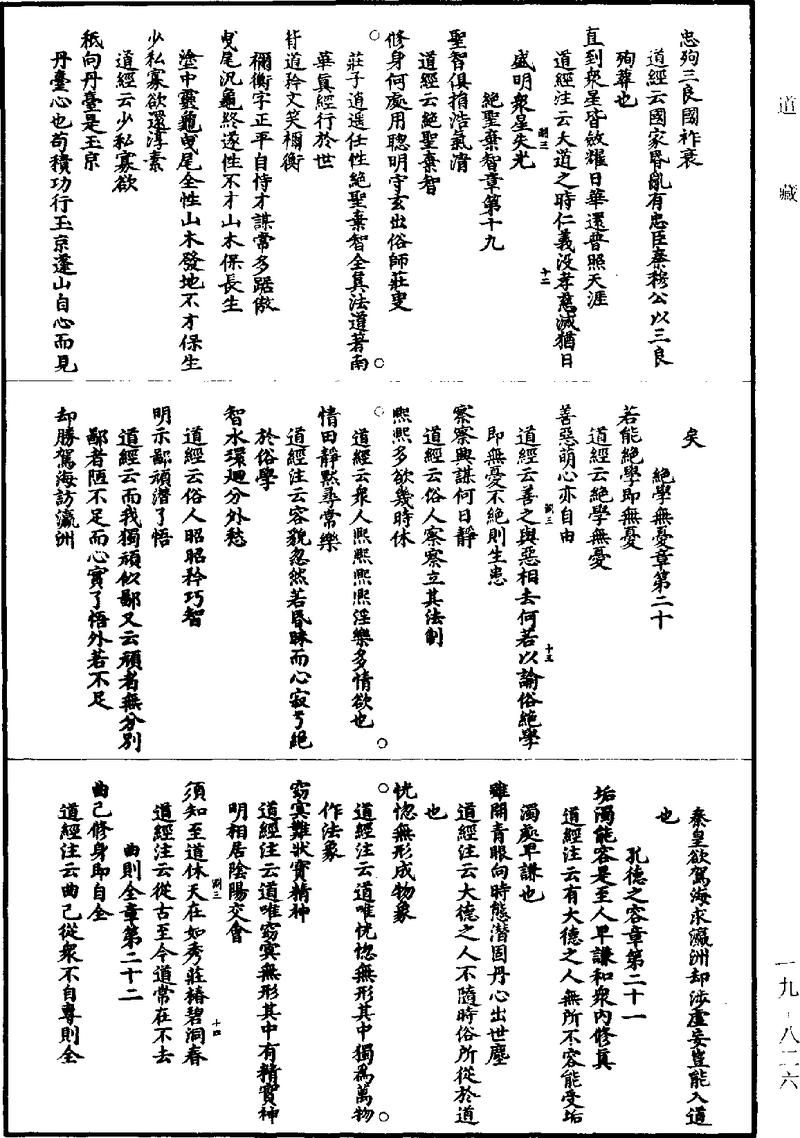 道藏
忠殉三良國祚衰
道經云國家昏亂有忠臣秦穆公以三良
殉葬也
直到眾星皆斂耀日華還普照天涯
道經注云大道之時仁義沒孝慈滅猶日
盛明眾星失光
絕聖棄智章第十九
聖智俱捐浩氣清
道經云絕聖棄智
修身何處用聰明守玄出俗師莊叟
莊子逍遥任性絕聖棄智全其法道著南
華真經行於世
背道矜文笑禰衡
禰衡字正平自恃才謀常多踞傲
曳尾汎龜終遂性不才山木保長生
塗中靈龜曳尾全性山木發地不才保生
少私寡欲還淳素
道經云少私寡欲
秪向丹臺是玉京
丹臺心也苟積功行玉京蓬山自心而見
矣
絕學無憂章第二十
若能絕學即無憂
道經云絕學無憂
善惡萌心亦自由
道經云善之與惡相去何若以論俗絕學
即無憂不絕則生患
察察興謀何日靜
道經云俗人察察立其法制
熙熙多欲幾時休
道經云眾人熙熙熙熙淫樂多情欲也
情田靜默尋常樂
道經注云容貌忽然若昏昧而心寂兮絕
於俗學
智水環迴分外愁
道經云俗人昭昭矜巧智
明示鄙頑潛了悟
道經云而我獨頑似鄙又云頑者無分別
鄙者陋不足而心實了悟外若不足
却勝駕海訪瀛洲
秦皇欲駕海求瀛洲却涉虛妄豈能入道
也
孔德之容章第二十一
垢濁能容是至人卑謙和眾內修真
道經注云有大德之人無所不容能受垢
濁處卑謙也
雖開青眼向時態潛固丹心出世塵
道經注云大德之人不隨時俗所從於道
也
恍惚無形成物象
道經注云道唯恍惚無形其中獨為萬物
作法象
窈冥難狀實精神
道經注云道唯窈冥無形其中有精實神
明相居陰陽交會
須知至道休天在如秀莊椿碧洞春
道經注云從古至今道常在不去
曲則全章第二十二
曲己修身即自全
道經注云曲己從眾不自專則全
一九-八二六